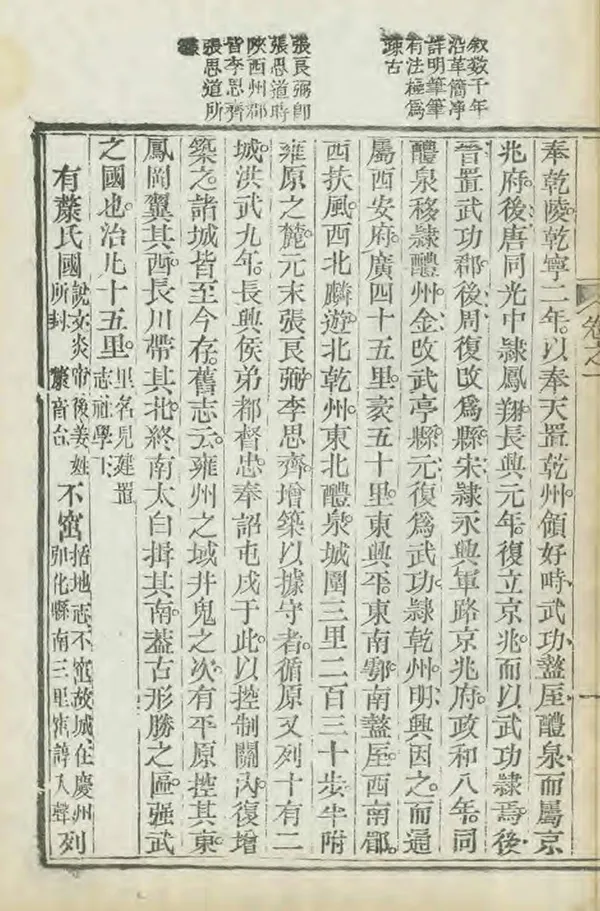 敘數千年
沿革簡淨
詳明筆筆
有法極爲
球古
張良弼卽
張思道時
陝西州郡
皆李思齊
張思道所
據
卷之一
奉乾陵乾寧二年。以奉天置乾州。領好畤武功盩厔醴泉而屬京
兆府。後唐同光中隸鳳翔。長興元年。復立京兆。而以武功隸焉。後
晉置武功郡。後周復改爲縣。宋隸永興軍路京兆府。政和八年。同
醴泉移隸醴州。金改武亭縣。元復爲武功。隸乾州。明興因之。而通
屬西安府。廣四十五里。袤五十里。東興平。東南鄠。南盩厔。西南郿。
西扶風。西北麟遊。北乾州。東北醴泉。城圍三里二百三十步。半附
雍原之麓。元末張良弼李思齊增築以據守者。循原又列十有二
城。洪武九年。長興侯弟都督忠。奉詔屯戍于此。以控制關內。復增
築之。諸城皆至今存。舊志云。雍州之域。井鬼之次。有平原控其東。
鳳岡翼其西。長川帶其北。終南太白揖其南。蓋古形勝之區。强武
之國也。治凡十五里。里名見建置
志社學下
有漦氏國 說文炎帝後姜姓
所封 漦音台 不窋 括地志不窋故城在慶州
弘化縣南三里窋諄入聲 列